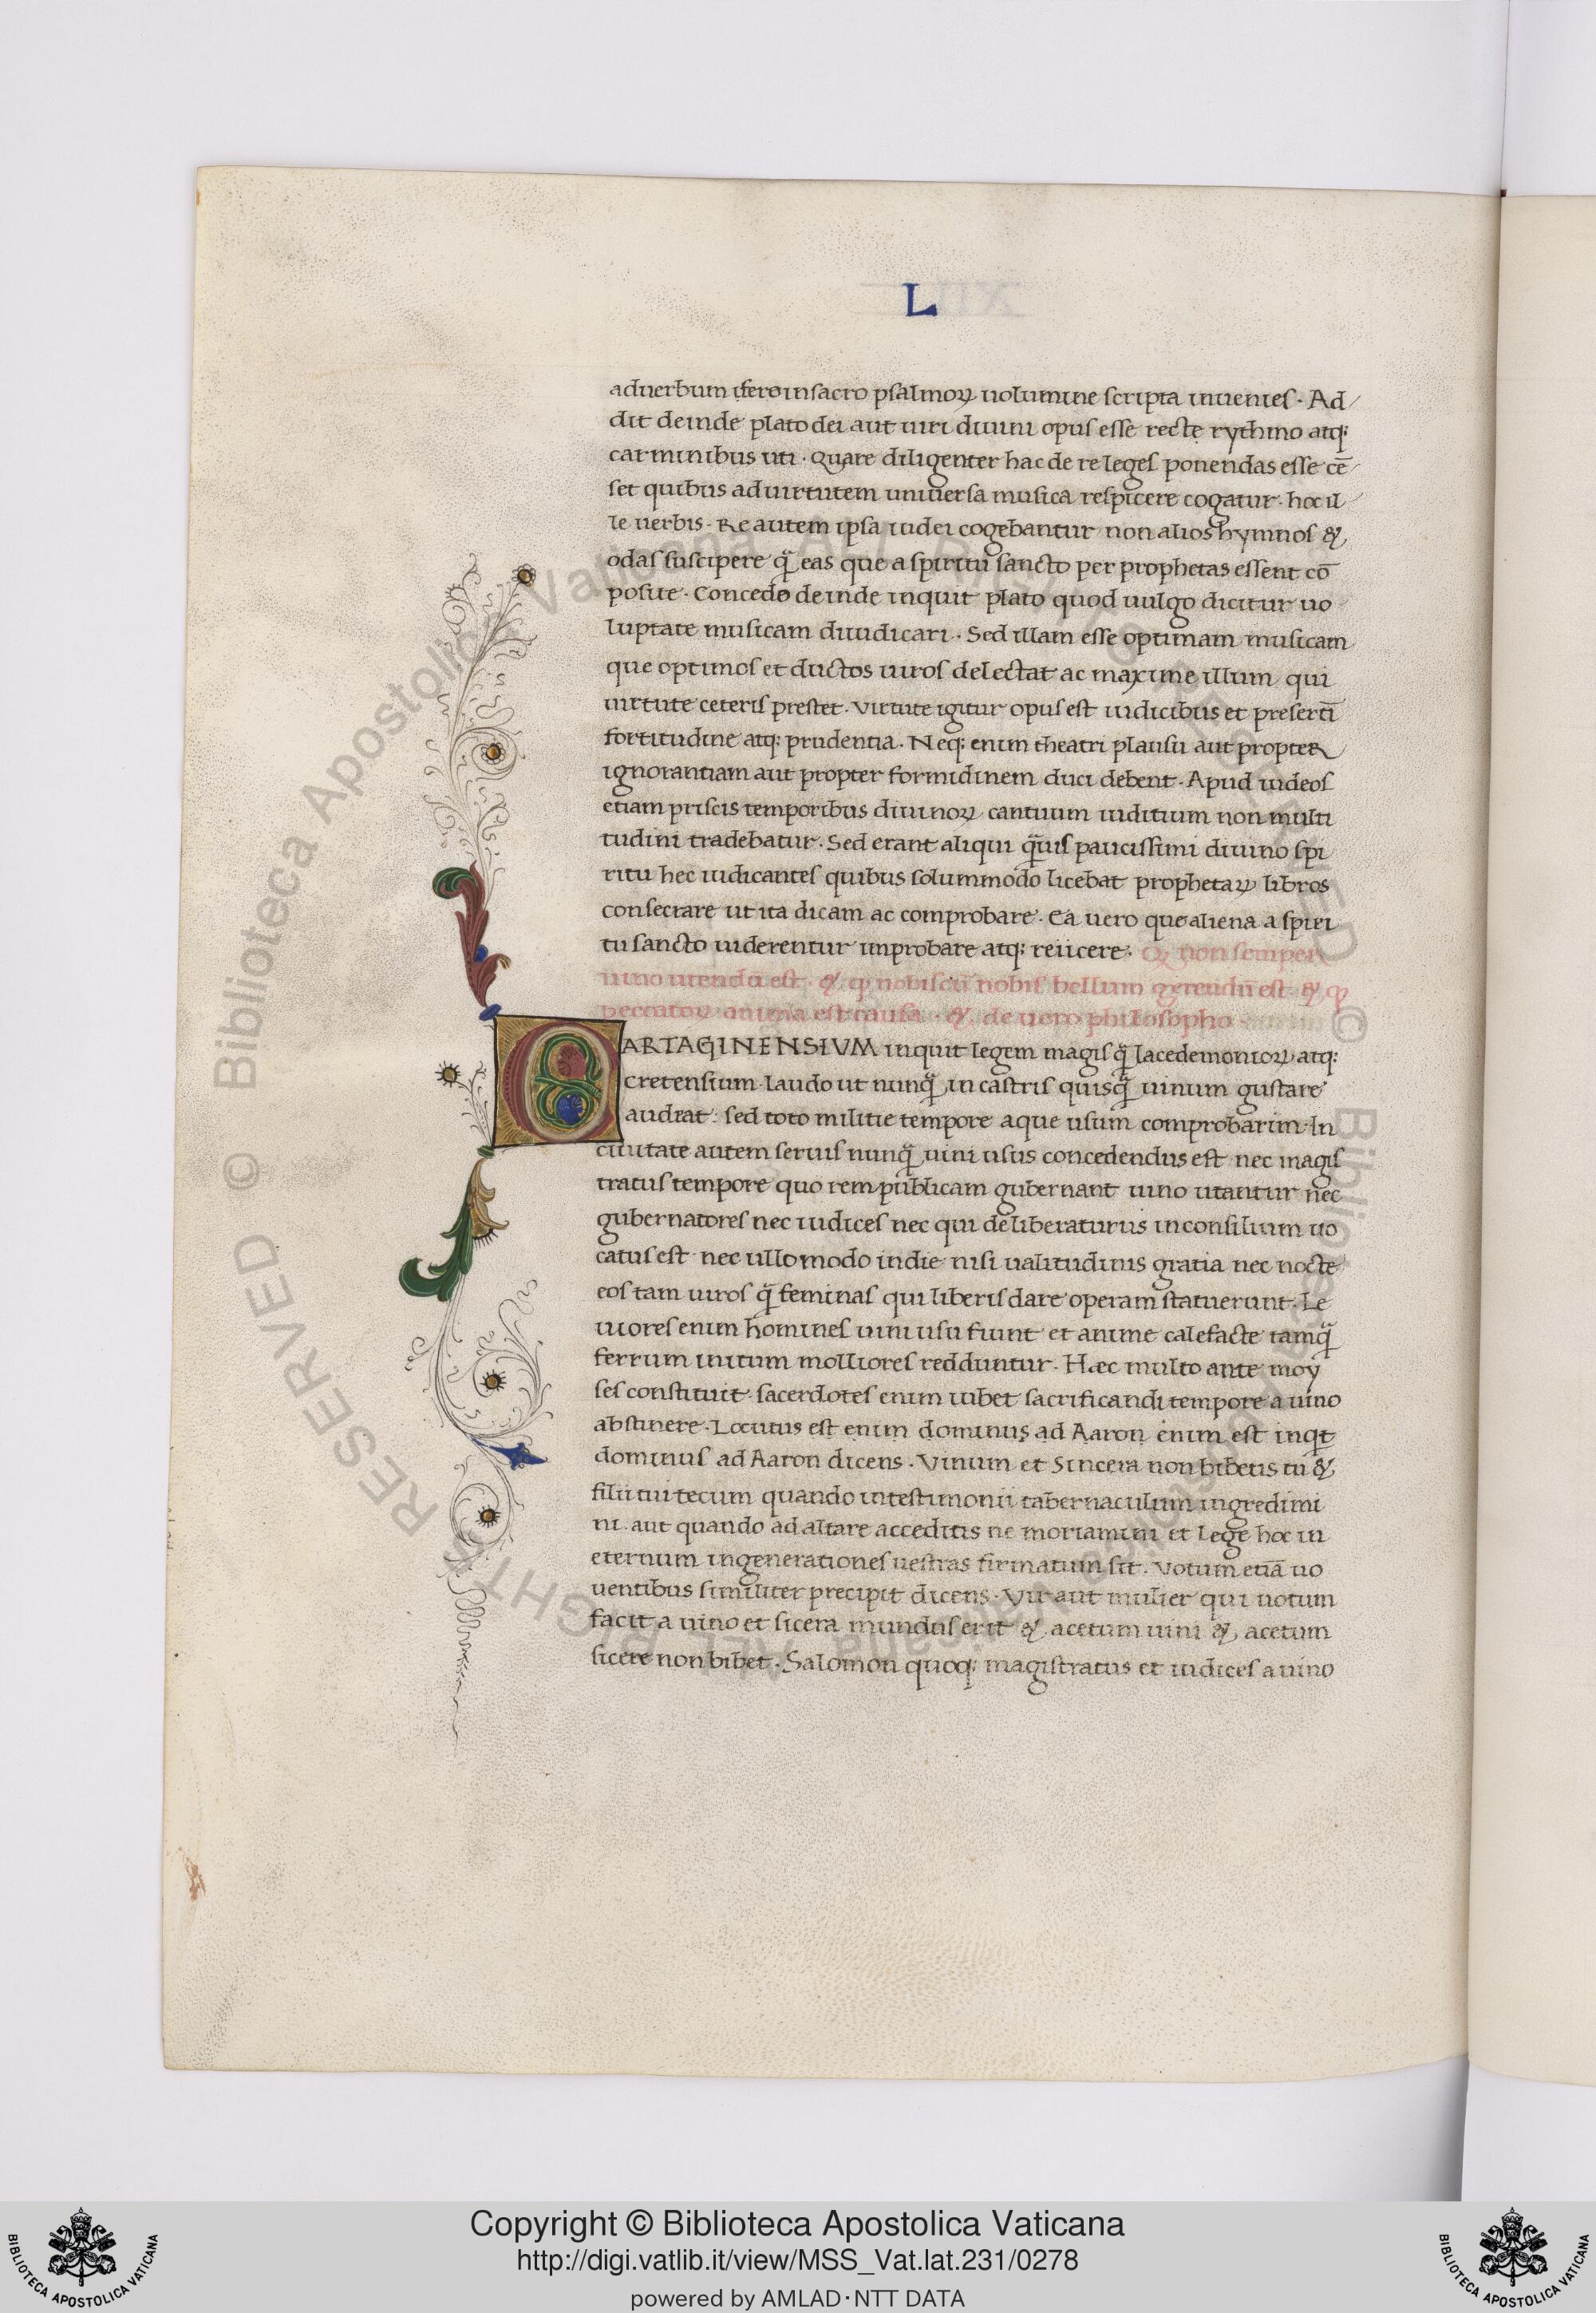 L
ad uerbum fere in sacro psalmoꝝ uolumine scripta inuenies · Ad/
dit deinde plato dei aut uiri diuini opus esse recte rythmo atq;
carminibus uti · Quare diligenter hac de re leges ponendas esse cē
set quibus ad uirtutem uniuersa musica respicere cogatur · hoc il
le uerbis · Re autem ipsa iudei cogebantur non alios hymnos &
odas suscipere q̃ eas que a spiritu sancto per prophetas essent cō
posite · Concedo deinde inquit plato quod uulgo dicitur uo
luptate musicam diiudicari · Sed illam esse optimam musicam
que optimos et ductos uiros delectat ac maxime illum qui
uirtute ceteris prestet · Virtute igitur opus est iudicibus et presertī
fortitudine atq; prudentia · Neq; enim theatri plausu aut propter
ignorantiam aut propter formidinem duci debent · Apud iudeos
etiam priscis temporibus diuinoꝝ cantuum iuditium non multi
tudini tradebatur · Sed erant aliqui q̃uis paucissimi diuino spi
ritu hec iudicantes quibus solummodo licebat prophetaꝝ libros
consecrare ut ita dicam ac comprobare · Ea uero que aliena a spiri
tu sancto uiderentur improbare atq; reiicere · Q non semper
uino utendū est · & q nobiscū nobis bellum gerendū est · & q
peccatoꝝ anima est causa · & de uero philosopho
CARTAGINENSIVM inquit legem magis q̃ lacedemonioꝝ atq;
cretensium laudo ut nunq̃ in castris quisq̃ uinum gustare
audeat · sed toto militie tempore aque usum comprobarim · In
ciuitate autem seruis nunq̃ uini usus concedendus est nec magis
tratus tempore quo rem publicam gubernant uino utantur nec
gubernatores nec iudices nec qui deliberaturus in consilium uo
catus est nec ullo modo in die nisi ualitudinis gratia nec nocte
eos tam uiros q̃ feminas qui liberis dare operam statuerunt · Le
uiores enim homines uini usu fiunt et anime calefacte tamq̃
ferrum initum molliores redduntur · Hæc multo ante moy
ses constituit · sacerdotes enim iubet sacrificandi tempore a uino
abstinere · Locutus est enim dominus ad Aaron enim est inqt
dominus ad Aaron dicens · Vinum et Sincera non bibetis tu &
filii tui tecum quando in testimonii tabernaculum ingredimi
ni · aut quando ad altare acceditis ne moriamini et Lege hoc in
eternum in generationes uestras firmatum sit · Votum etiā uo
uentibus similiter precipit dicens · Vir aut mulier qui uotum
facit a uino et sicera mundus erit & acetum uini & acetum
sicere non bibet · Salomon quoq; magistratus et iudices a uino
Copyright © Biblioteca Apostolica Vaticana
http://digi.vatlib.it/view/MSS_Vat.lat.231/0278
powered by AMLAD·NTT DATA